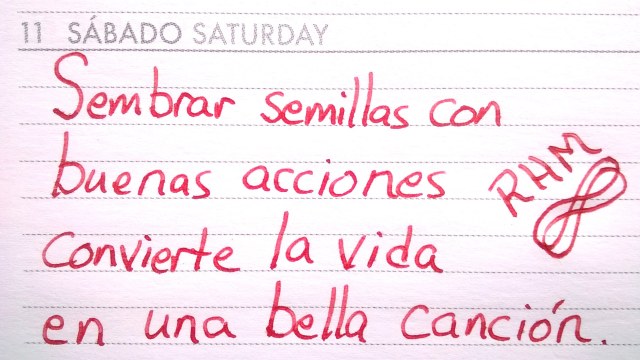 11 SÁBADO SATURDAY
Sembrar semillas con
buenas acciones
RHM
convierte la vida
en una bella canción.